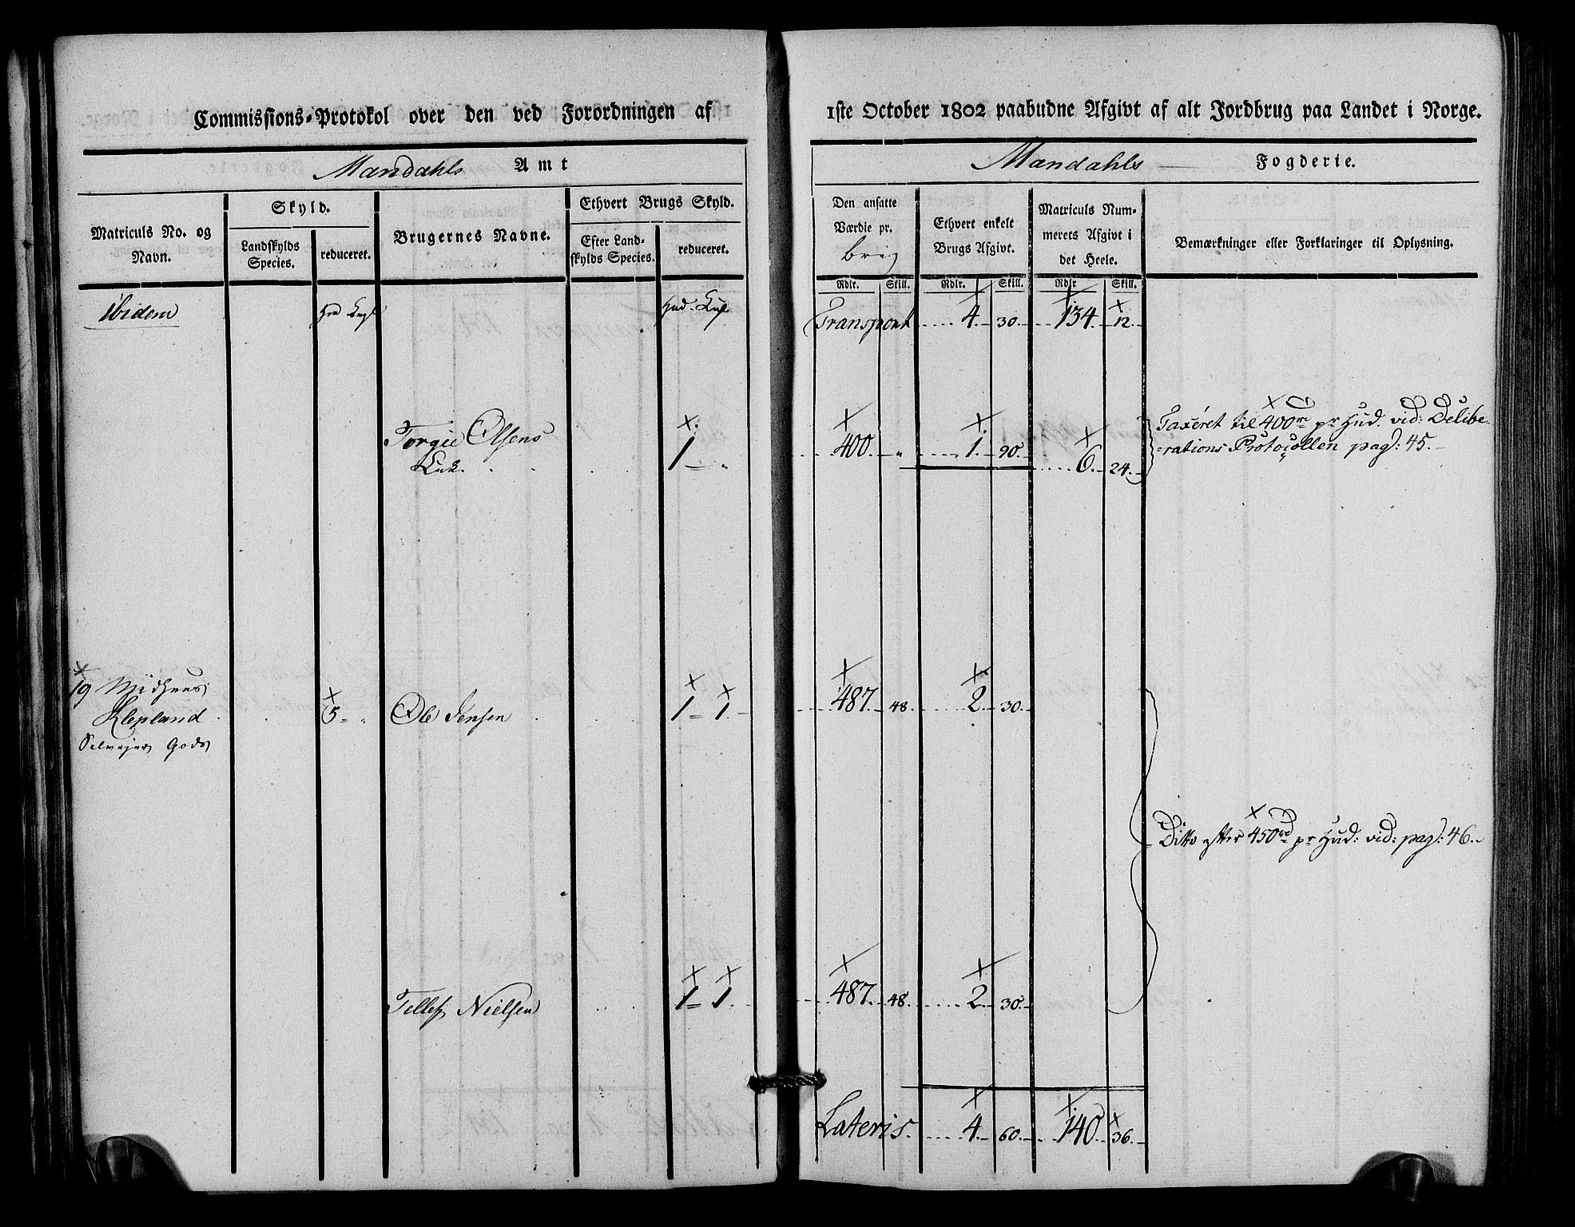 Commissions-Protokol over den ved Forordningen af 1ste October 1802 paabudne Afgivt af alt Jordbrug paa Landet i Norge.
Mandahls Amt
Mandahls Fogderie.
Matriculs No. og
Navn.
Skyld.
Landskylds
Species.
reduceret.
Brugernes Navne.
Ethvert Brugs Skyld.
Efter Land-
skylds Species.
reduceret.
Den ansatte
Værdie pr.
Ethvert enkelt
Brugs Afgivt.
Matriculs Num-
merets Afgivt i
det Heele.
Bemærkninger eller Forklaringer til Oplysning.
Rdlr. Skill. Rdlr. Skill. Rdlr. Skill.
Ibidem Transport 4 30 134 12
Torgie Olsens 1 400 1 90
Enke 6 24
Taxeret til 400 rd pr Hud. vid: Delibe-
rations Protocollen pag: 45.
19
Klepland 5 Ole Jensen 1 1 487 48 2 30
Selvejer Gods
Ditto efter 450 rd pr Hud: vid: pag: 46.
Tellef Nielsen 1 1 487 48 2 30
Lateris 4 60 140 36